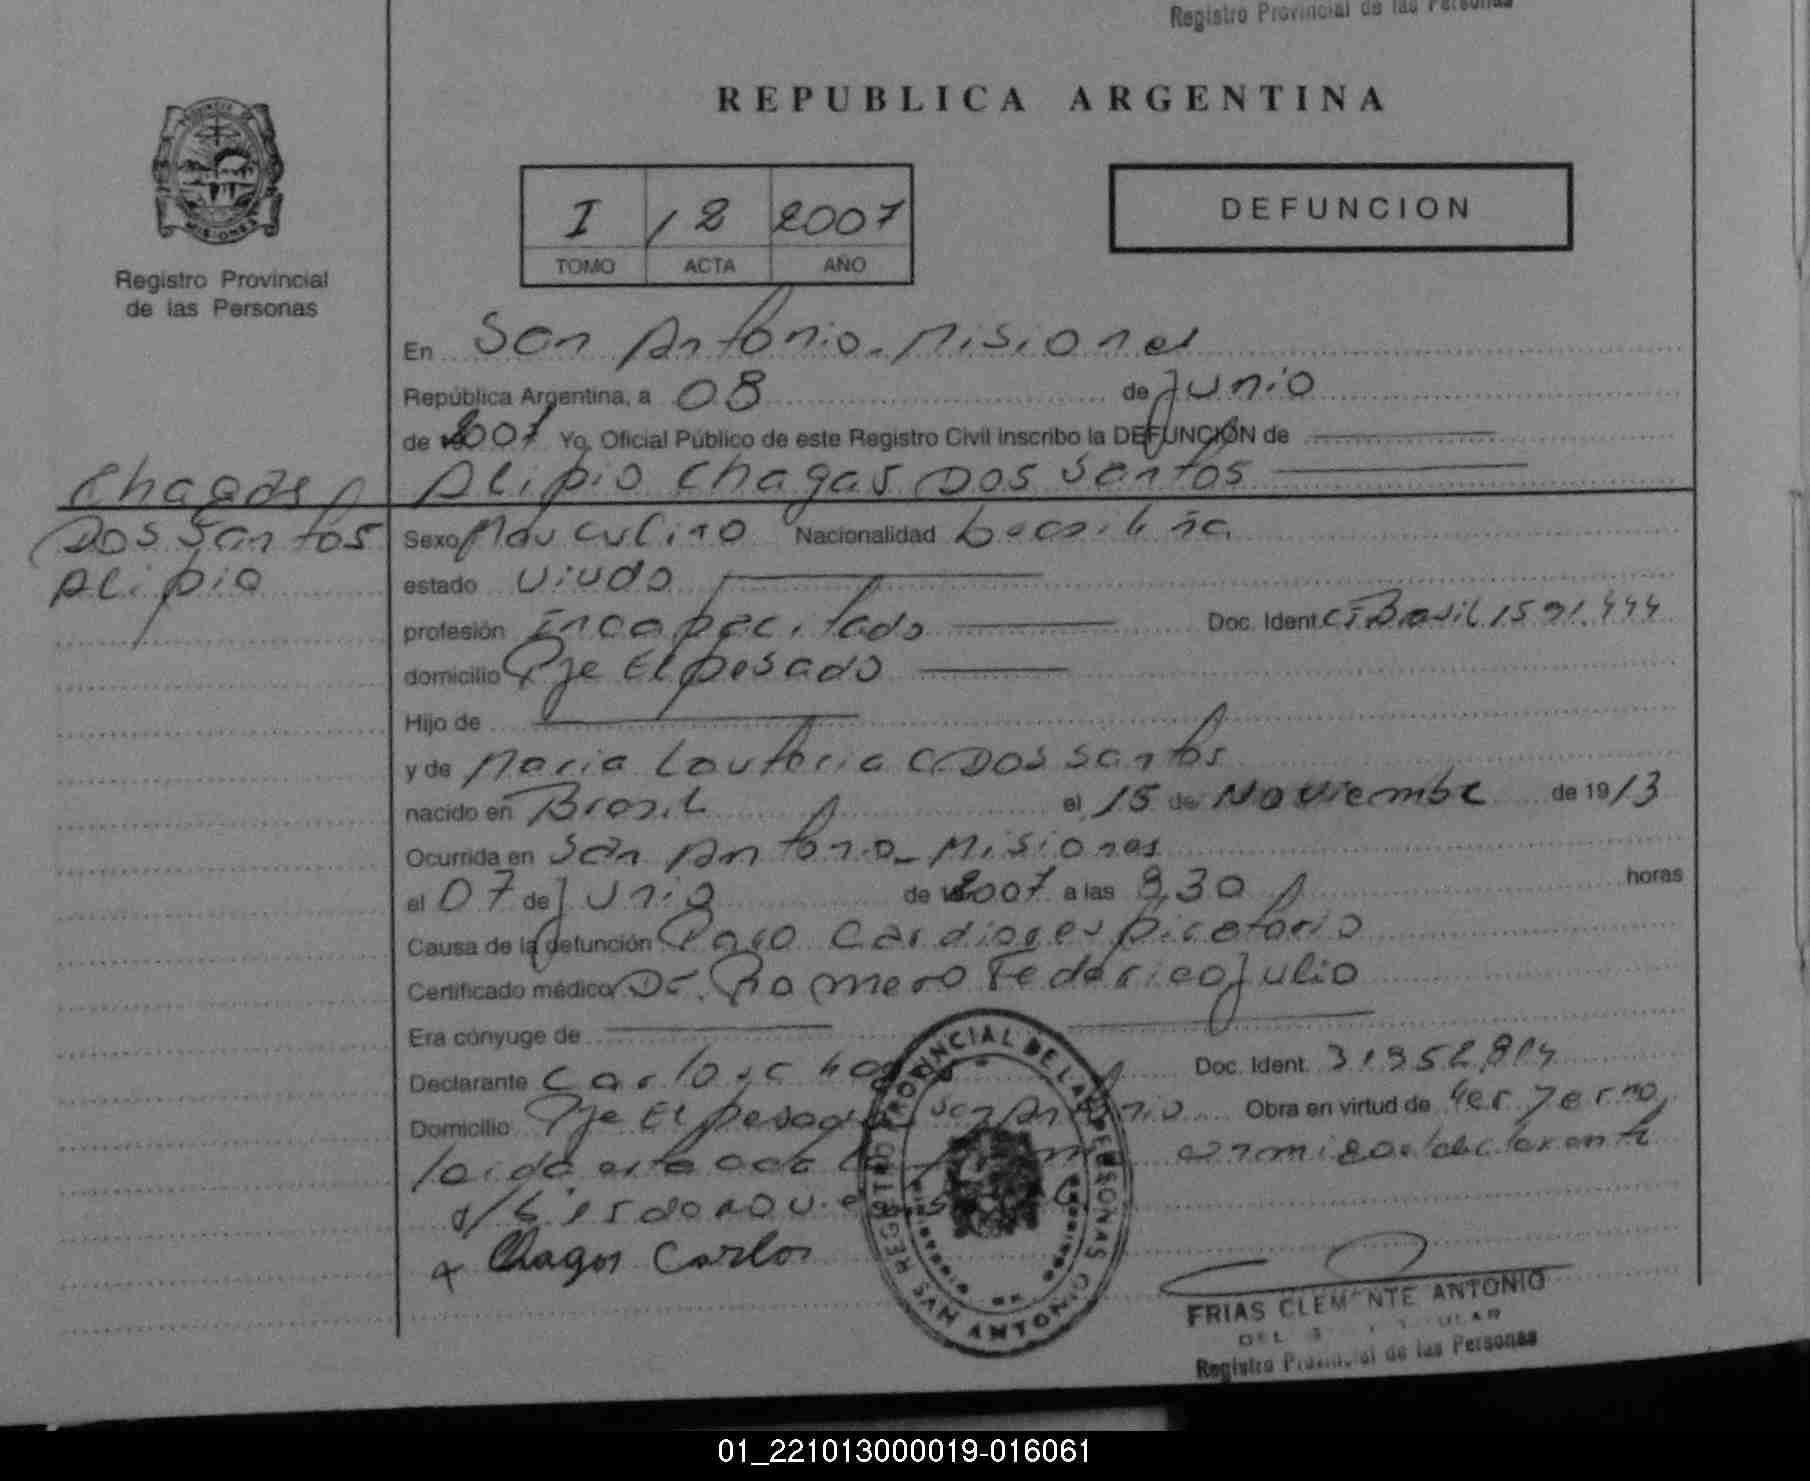 Registro Provincial de las Personas
REPUBLICA ARGENTINA
PROVINCIA DE
MISIONES
Registro Provincial
de las Personas
I 12 2007
TOMO ACTA AÑO
DEFUNCION
En San Antonio - Misiones
República Argentina, a 08 de Junio
de 2007 Yo, Oficial Público de este Registro Civil inscribo la DEFUNCIÓN de
Alipio Chagas Dos Santos
Chagas
Dos Santos
Alipio
Sexo Masculino Nacionalidad brasileña
estado Viudo
profesión Incapacitado Doc. Ident. CI Brasil 1591.444
domicilio Pje El pesado
Hijo de
y de Maria Lauteria C. Dos Santos
nacido en Brasil el 15 de Noviembre de 1913
Ocurrida en San Antonio - Misiones
el 07 de Junio de 2007 a las 9,30 horas
Causa de la defunción Paro Cardiorespiratorio
Certificado médico Dr. Romero Federico Julio
Era cónyuge de
Declarante Carlos Chagas Doc. Ident. 31.952.814
Domicilio Pje El pesado San Antonio Obra en virtud de ser yerno,
leida esta acta la firma conmigo el declarante
15 de nov.
x Chagas Carlos
REGISTRO PROVINCIAL DE LAS PERSONAS
SAN ANTONIO
MISIONES
FRIAS CLEMENTE ANTONIO
Registro Provincial de las Personas
01_221013000019-016061